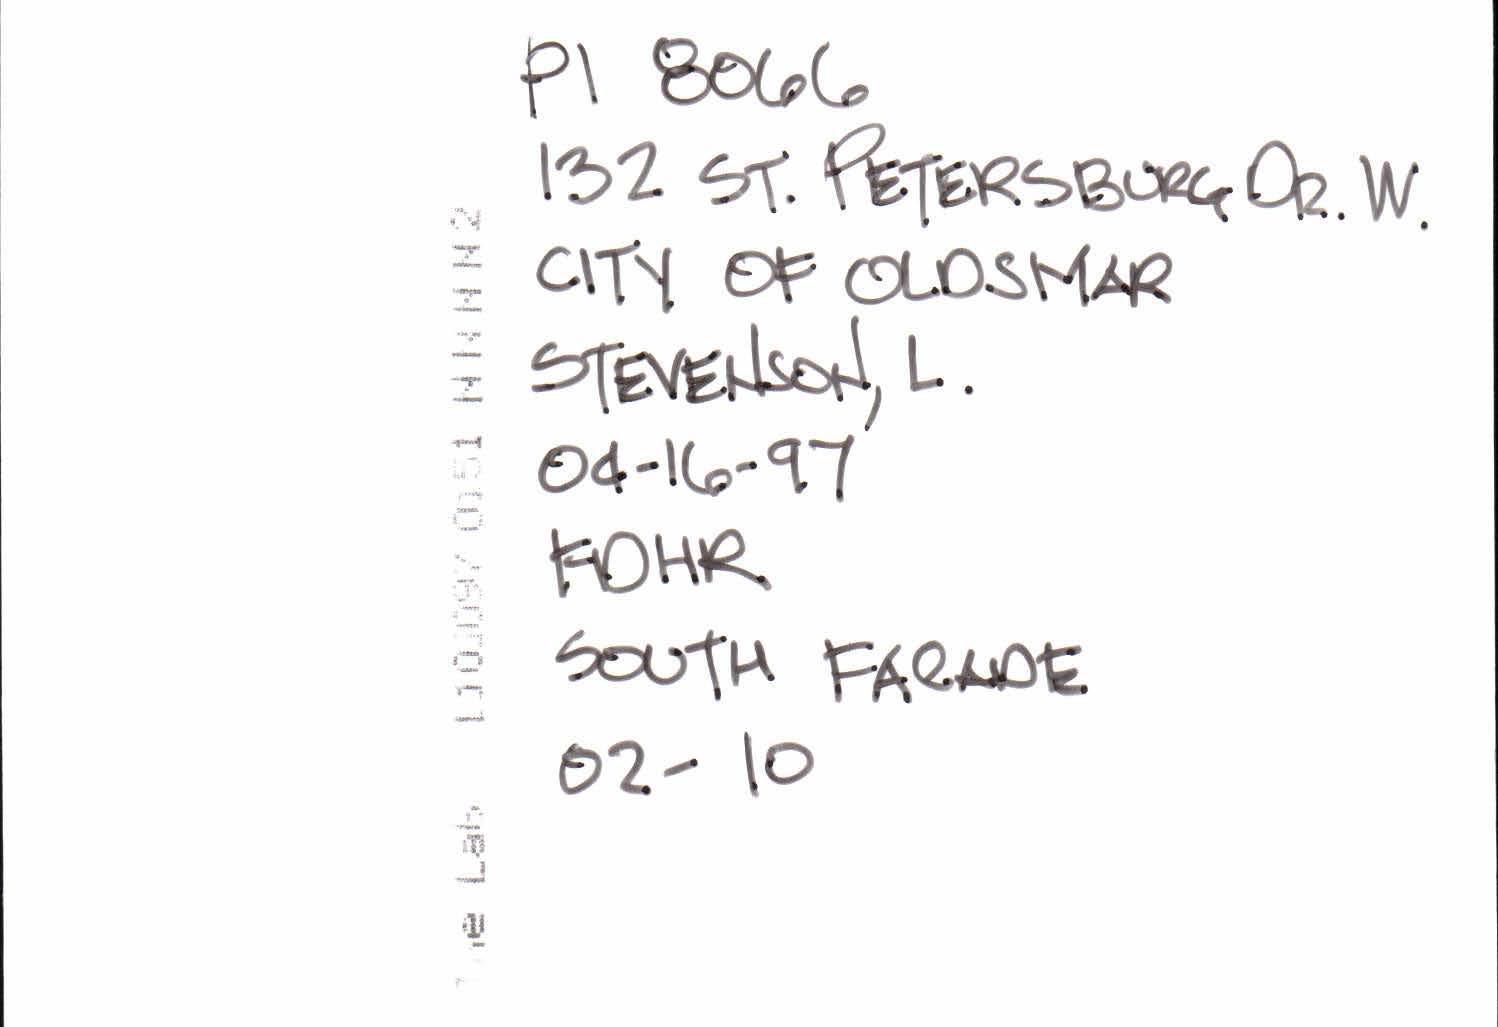 PI 8066
132 ST. PETERSBURG DR. W.
CITY OF OLDSMAR
STEVENSON, L.
04-16-97
FDHR
SOUTH FACADE
02-10